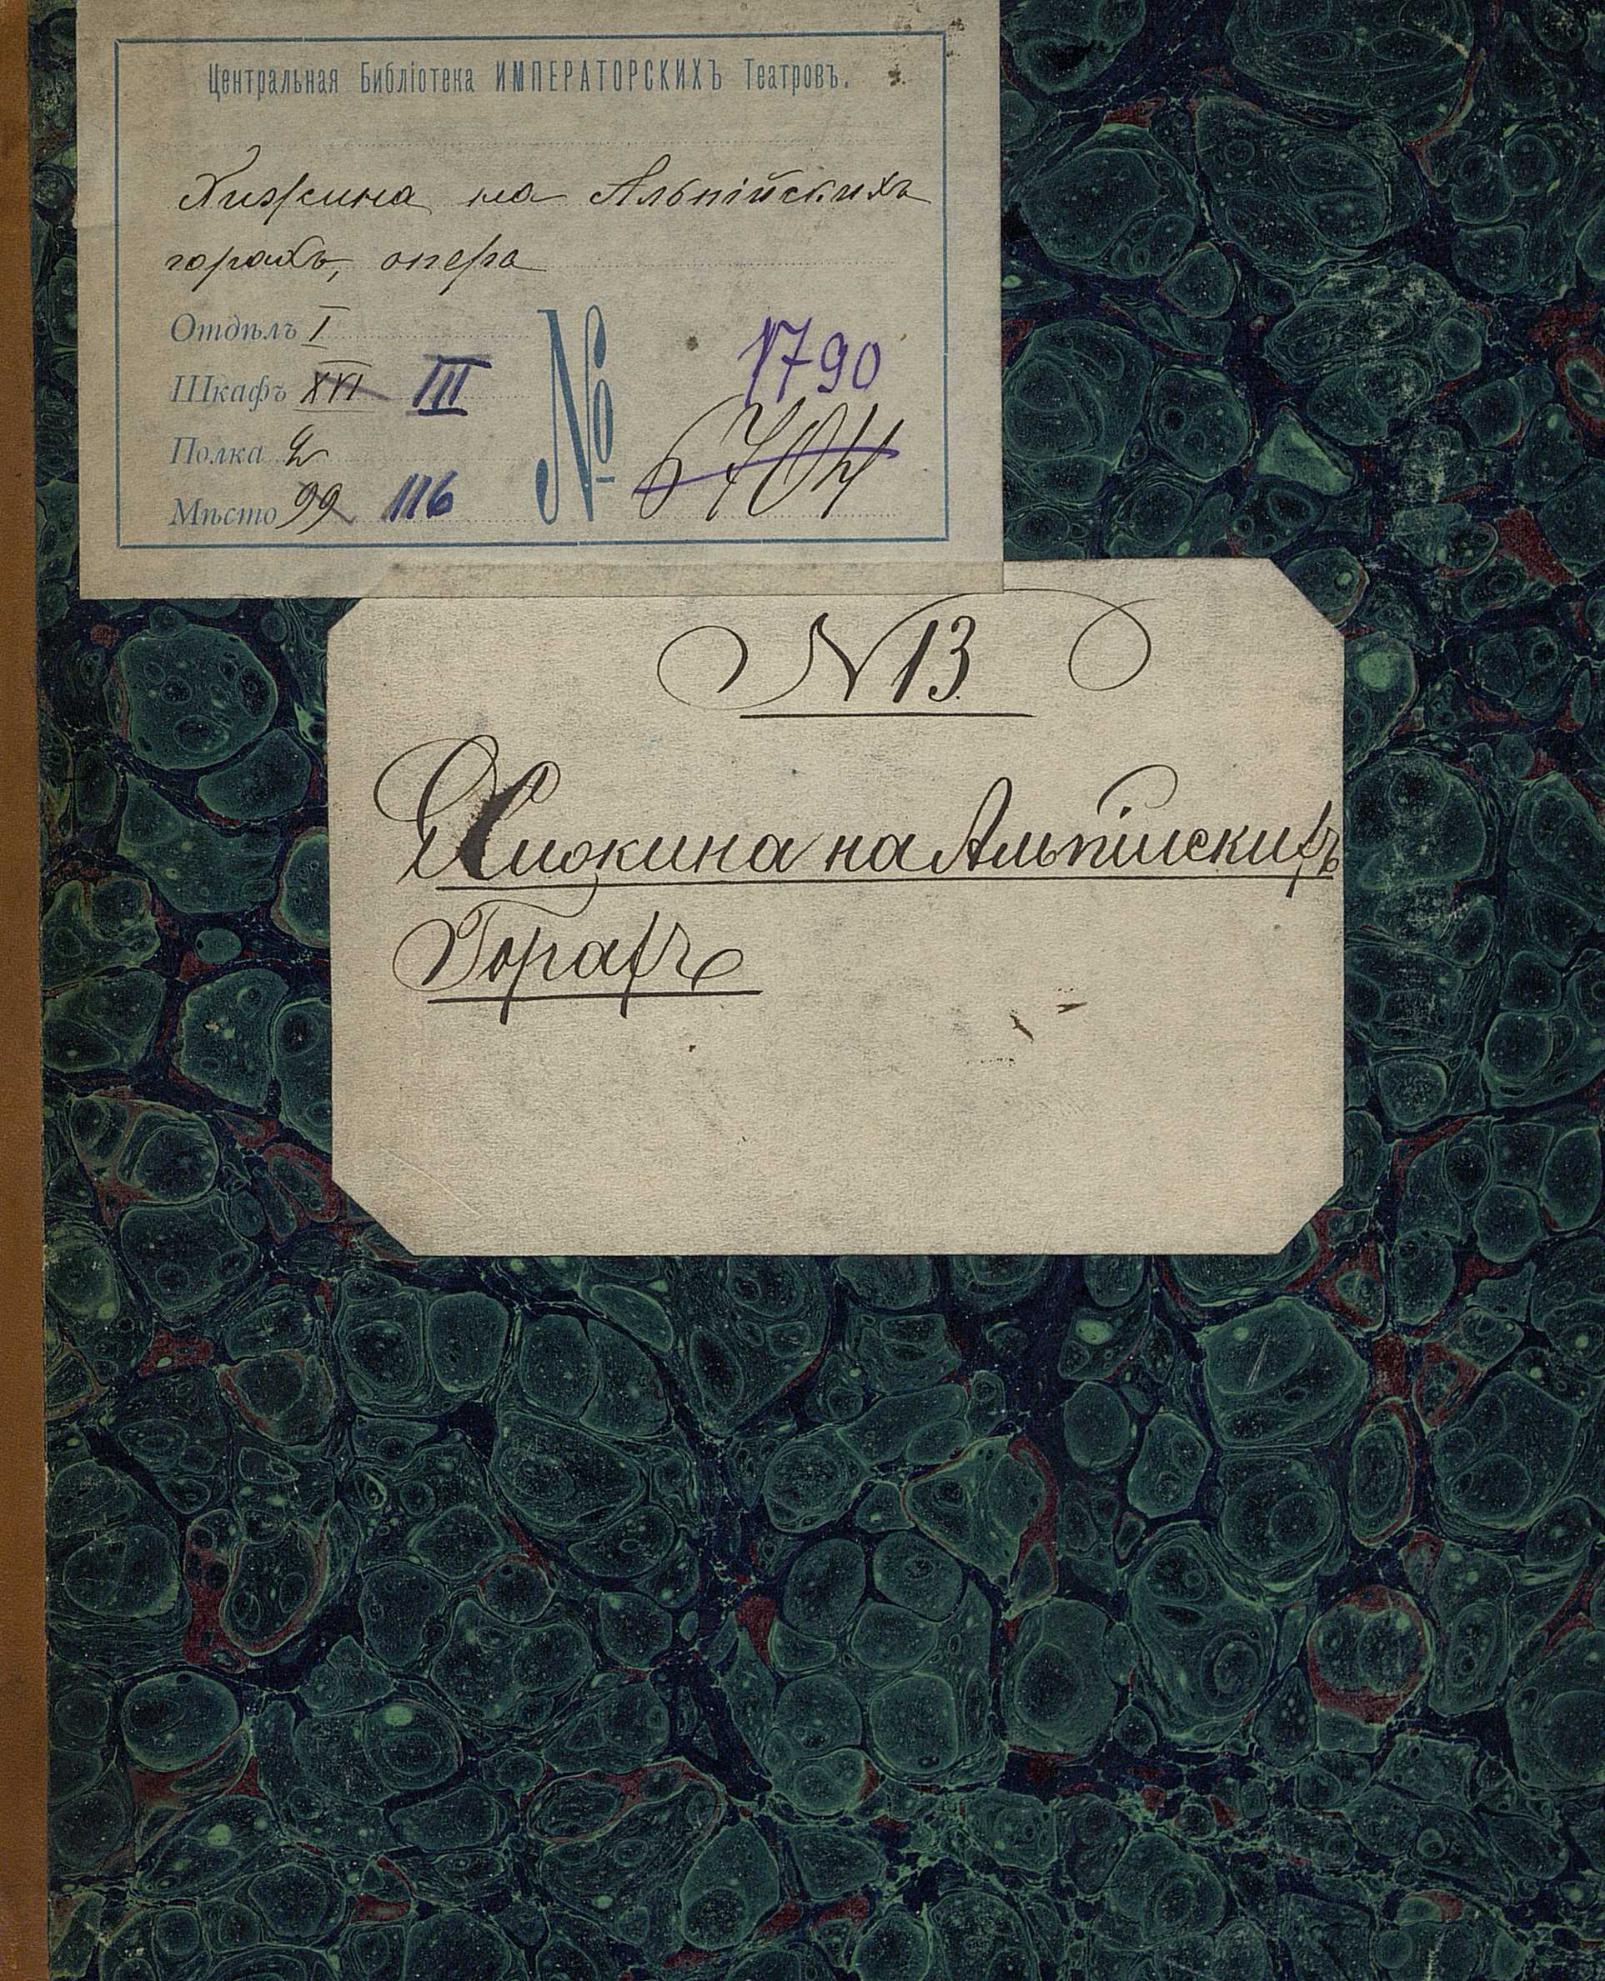 Центральная Библіотека ИМПЕРАТОРСКИХЪ Театровъ.
Хижина на Альпійскихъ
горахъ, опера
Отдѣлъ I
Шкафъ XVI III
Полка 2
Мѣсто 99 116
№ 1790
6704
N 13.
Хижина на Альпійскихъ
Горахъ